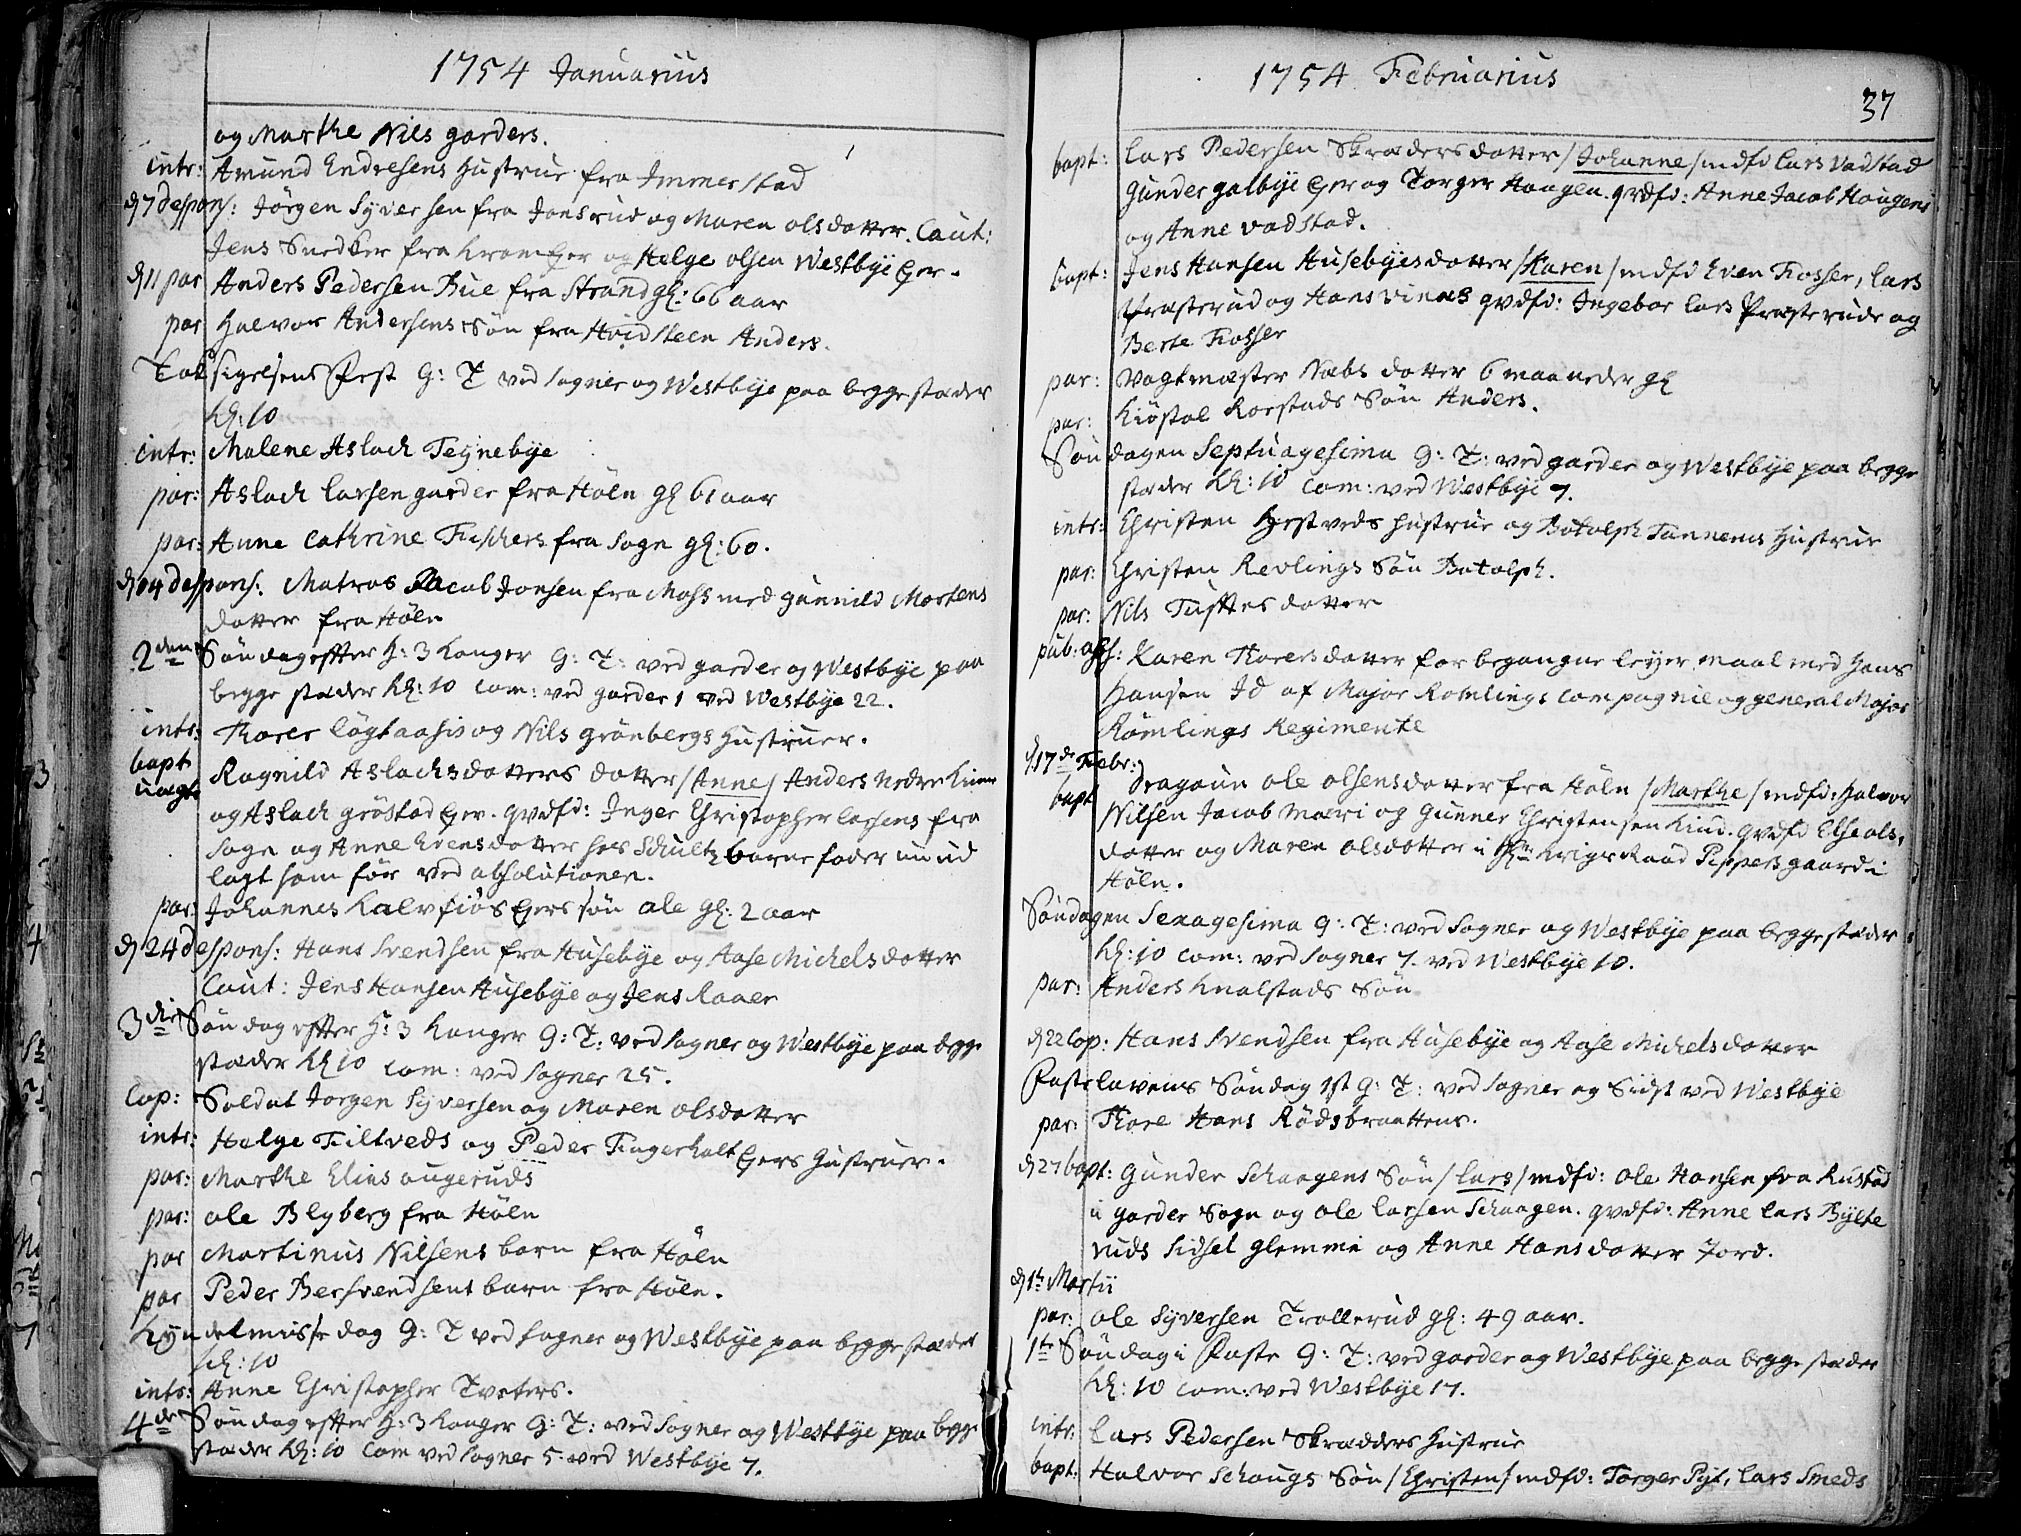 1754 Januarius
og Marthe Nils garders.
intr: Amund Endresens Hustrue fra Immerstad
d 7 despons: Jörgen Syversen fra Jonsrud og Maren olsdatter. Caut:
Jens Snedker fra Kromger og Helge olsen Westbye Eger.
d 11 par Anders Pedersen Bue fra Strand gl: 66 aar
par Halvor Andersens Sön fra Hvidsteen Anders.
Taksigelsens Fest G: T ved Sogner og Westbye paa begge stæder
Kl: 10
intr: Malene Aslach Teynebye
par: Aslach larsen garder fra Höln gl 61 aar
par: Anne Cathrine Fischers fra Sogn gl: 60.
d 14 despons: Matros Jacob Jonsen fra Moss med gunnild Mortens
datter fra Höln
2den Söndag effter H: 3 Konger G: T: ved garder og Westbye paa
begge stæder Kl: 10 Com: ved garder 1 ved Westbye 22.
intr: Thorer lögtaasis og Nils grönbergs Hustruer.
bapt Ragnild Aslachsdatters datter /Anne/ Anders nedre
uægte og Aslach gröstad Eger. qvdfd: Inger Christopher larsens fra
Sogn og Anne Evensdatter hos Schultz barnefader
lagt som för ved absolutionen.
par: Johannes Kalvfiös Egers sön ole gl: 2 aar
d 24 despons: Hans Svendsen fra Husebye og Aase Michelsdatter
Caut: Jens Hansen Husebye og Jens Raaer
3die Söndag effter H: 3 Konger G: T: ved Sogner og Westbye paa begge
stæder Kl 10 Com: ved Sogner 25.
Cop: Soldat Jorgen Syversen og Maren olsdatter
intr: Helge Filtveds og Peder Fingerholt Egers Hustruer.
par: Marthe Elins augeruds
par: ole Blyberg fra Höln
par Martinus Nilsens barn fra Höln
par Peder Bersvendsens barn fra Höln.
Kyndelmisse dag G: T ved Sogner og Westbye paa begge stæder
Kl: 10
intr: Anne Christopher Tveters.
4de Söndag effter H: 3 Konger G: T: ved Sogner og Westbye paa begge
stæder Kl: 10 Com ved Sogner 5. ved Westbye 7.
1754 Februarius
37
bapt: Lars Pedersen Skræders datter /Johanne/ mdfd Lars Vadstad
gunder galbye Eger og Torger Haugen. qvdfd: Anne Jacob Haugens
og Anne vadstad.
bapt: Jens Hansen Husebyes datter /Karen/ mdfd Even Fosser, Lars
Præsterud og Hans vinnes qvdfd: Ingebor Lars Præsterude og
Berte Fosser
par: Vagtmæster Næbs datter 6 maaneder gl
par: Kiöstol Rorstads Sön Anders.
Söndagen Septuagesima G: T: ved garder og Westbye paa begge
stæder Kl: 10 Com: ved Westbye 7.
intr: Christen Hestveds Hustrue og Botolph Tannems Hustrue
par: Christen Revlings Sön Botolph.
par: Nils Tufftes datter
pub: abs: Karen Thorersdatter for begangne leyermaal med Hans
Hansen Id af Major Römlings Compagnie og general Major
Römlings Regimente
d 17de Febr:
bapt Dragoun ole olsens datter fra Höln /Marthe/ mdfd: Halvor
Nilsen Jacob Mæri og Gunner Christensen Kind. qvdfd Else ols-
datter og Maren olsdatter i Krigs Raad Peppers gaard i
Höln.
Söndagen Sexagesima G: T: ved Sogner og Westbye paa begge stæder
Kl: 10 Com: ved Sogner 7. ved Westbye 10.
par: Anders Knalstads Sön
d 22 Cop: Hans Svendsen fra Husebye og Aase Michelsdatter
Fastelavens Söndag 1st G: T: ved Sogner og Sidst ved Westbye
par: Thore Hans Rödsbraattens.
d 27 bapt: Gunder Schaagens Sön /Lars/ mdfd: Ole Hansen fra Rustad
i garder Sogn og ole larsen Schaagen. qvdfd: Anne Lars Bylte
ruds Sidsel glemmi og Anne Hansdatter Jord.
d 1te Martii
par: ole Syversen Trollerud gl: 49 aar.
1te Söndag i Faste G: T: ved garder og Westbye paa begge stæder
Kl: 10 Com: ved Westbye 17.
intr: Lars Pedersen Skrædders Hustrue
bapt: Halvor Schaugs Sön /Christen/ mdfd: Torger Pyt, Lars Smeds